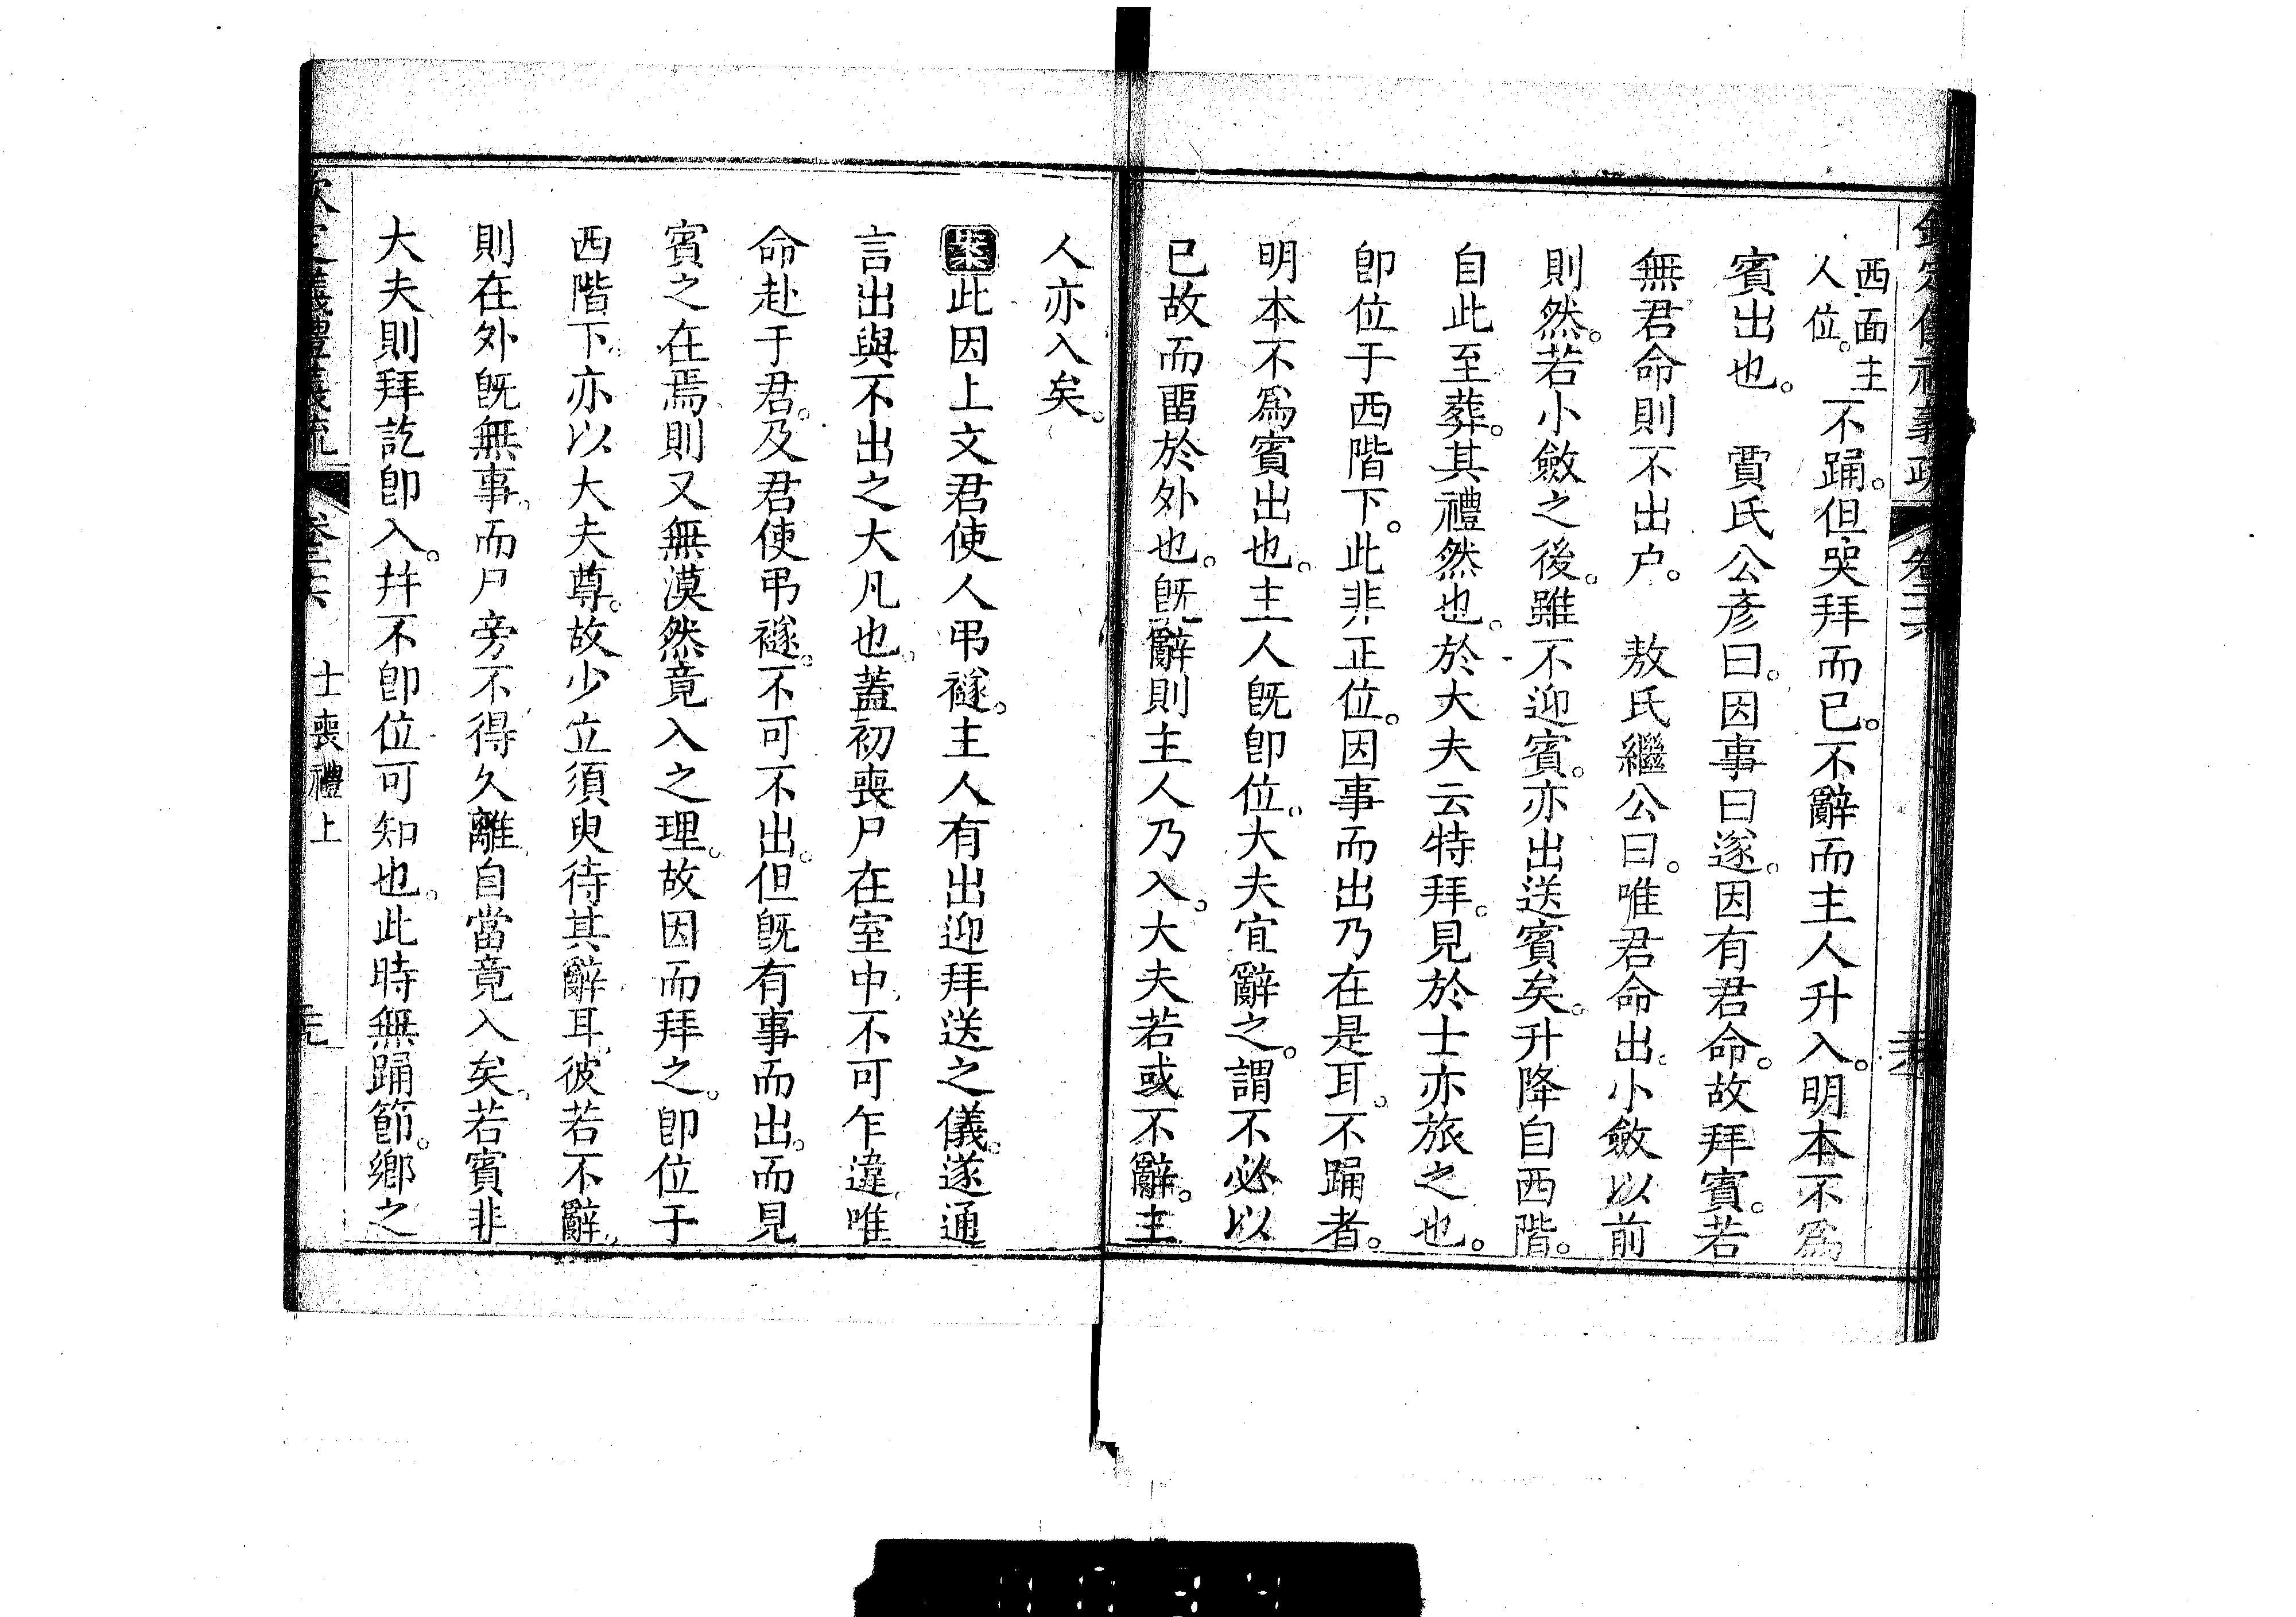 欽定儀禮義疏 卷二六
西面主
人位。不踊。但哭拜而已。不辭而主人升入。明本不爲
賓出也。　賈氏公彥曰。因事曰遂。因有君命。故拜賓。若
無君命則不出户。　敖氏繼公曰。唯君命出。小斂以前
則然。若小斂之後。雖不迎賓。亦出送賓矣。升降自西階。
自此至葬。其禮然也。於大夫云特拜。見於士亦旅之也。
卽位于西階下。此非正位。因事而出乃在是耳。不踊者。
明本不爲賓出也。主人旣卽位。大夫宜辭之。謂不必以
已故而畱於外也。旣辭則主人乃入。大夫若或不辭。主
人亦入矣。
案此因上文君使人弔襚。主人有出迎拜送之儀。遂通
言出與不出之大凡也。蓋初喪尸在室中。不可乍違。唯
命赴于君。及君使弔襚。不可不出。但旣有事而出。而見
賓之在焉。則又無漠然竟入之理。故因而拜之。卽位于
西階下。亦以大夫尊。故少立須臾待其辭耳。彼若不辭。
則在外旣無事。而尸旁不得久離。自當竟入矣。若賓非
大夫則拜訖卽入。并不卽位可知也。此時無踊節。鄉之
欽定儀禮義疏 卷二六 士喪禮上